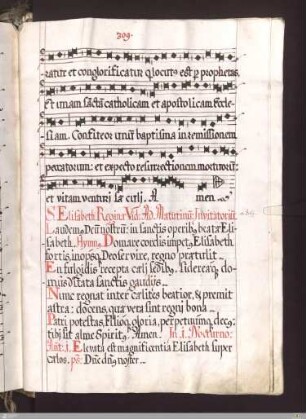 309.
ratur et conglorificatur q̃ locutꝰ est p̱ prophetas.
Et unam sanctã catholicam et apostolicam Eccle-
siam. Confiteor unũ baptisma in remissionem
peccatorum: et expecto resurrectionem mortuorũ:
et vitam venturi sæculi, A men.
S. Elisabeth Reginæ Vid.
Laudem Deũ nostrũ: in sanctis operibꝰ beatæ Eli-
sabeth. Hymnꝰ. Domare cordis impetꝰ Elisabeth
fortis, inopsq; Deo servire, regno prætulit.
En fulgidis recepta cæli sedibꝰ, sidereæq; do-
mus ditata sanctis gaudiis.
Nunc regnat inter cælites beatior, & premit
astra: docens, quæ vera sint regni bona.
Patri potestas, Filioq; gloria, perpetuumq; decꝰ,
tibi sit alme Spiritꝰ. Amen. In i. Nocturno.
Ant. i. Elevata est magnificentia Elisabeth super
cælos. ps. Dñe dñs noster.